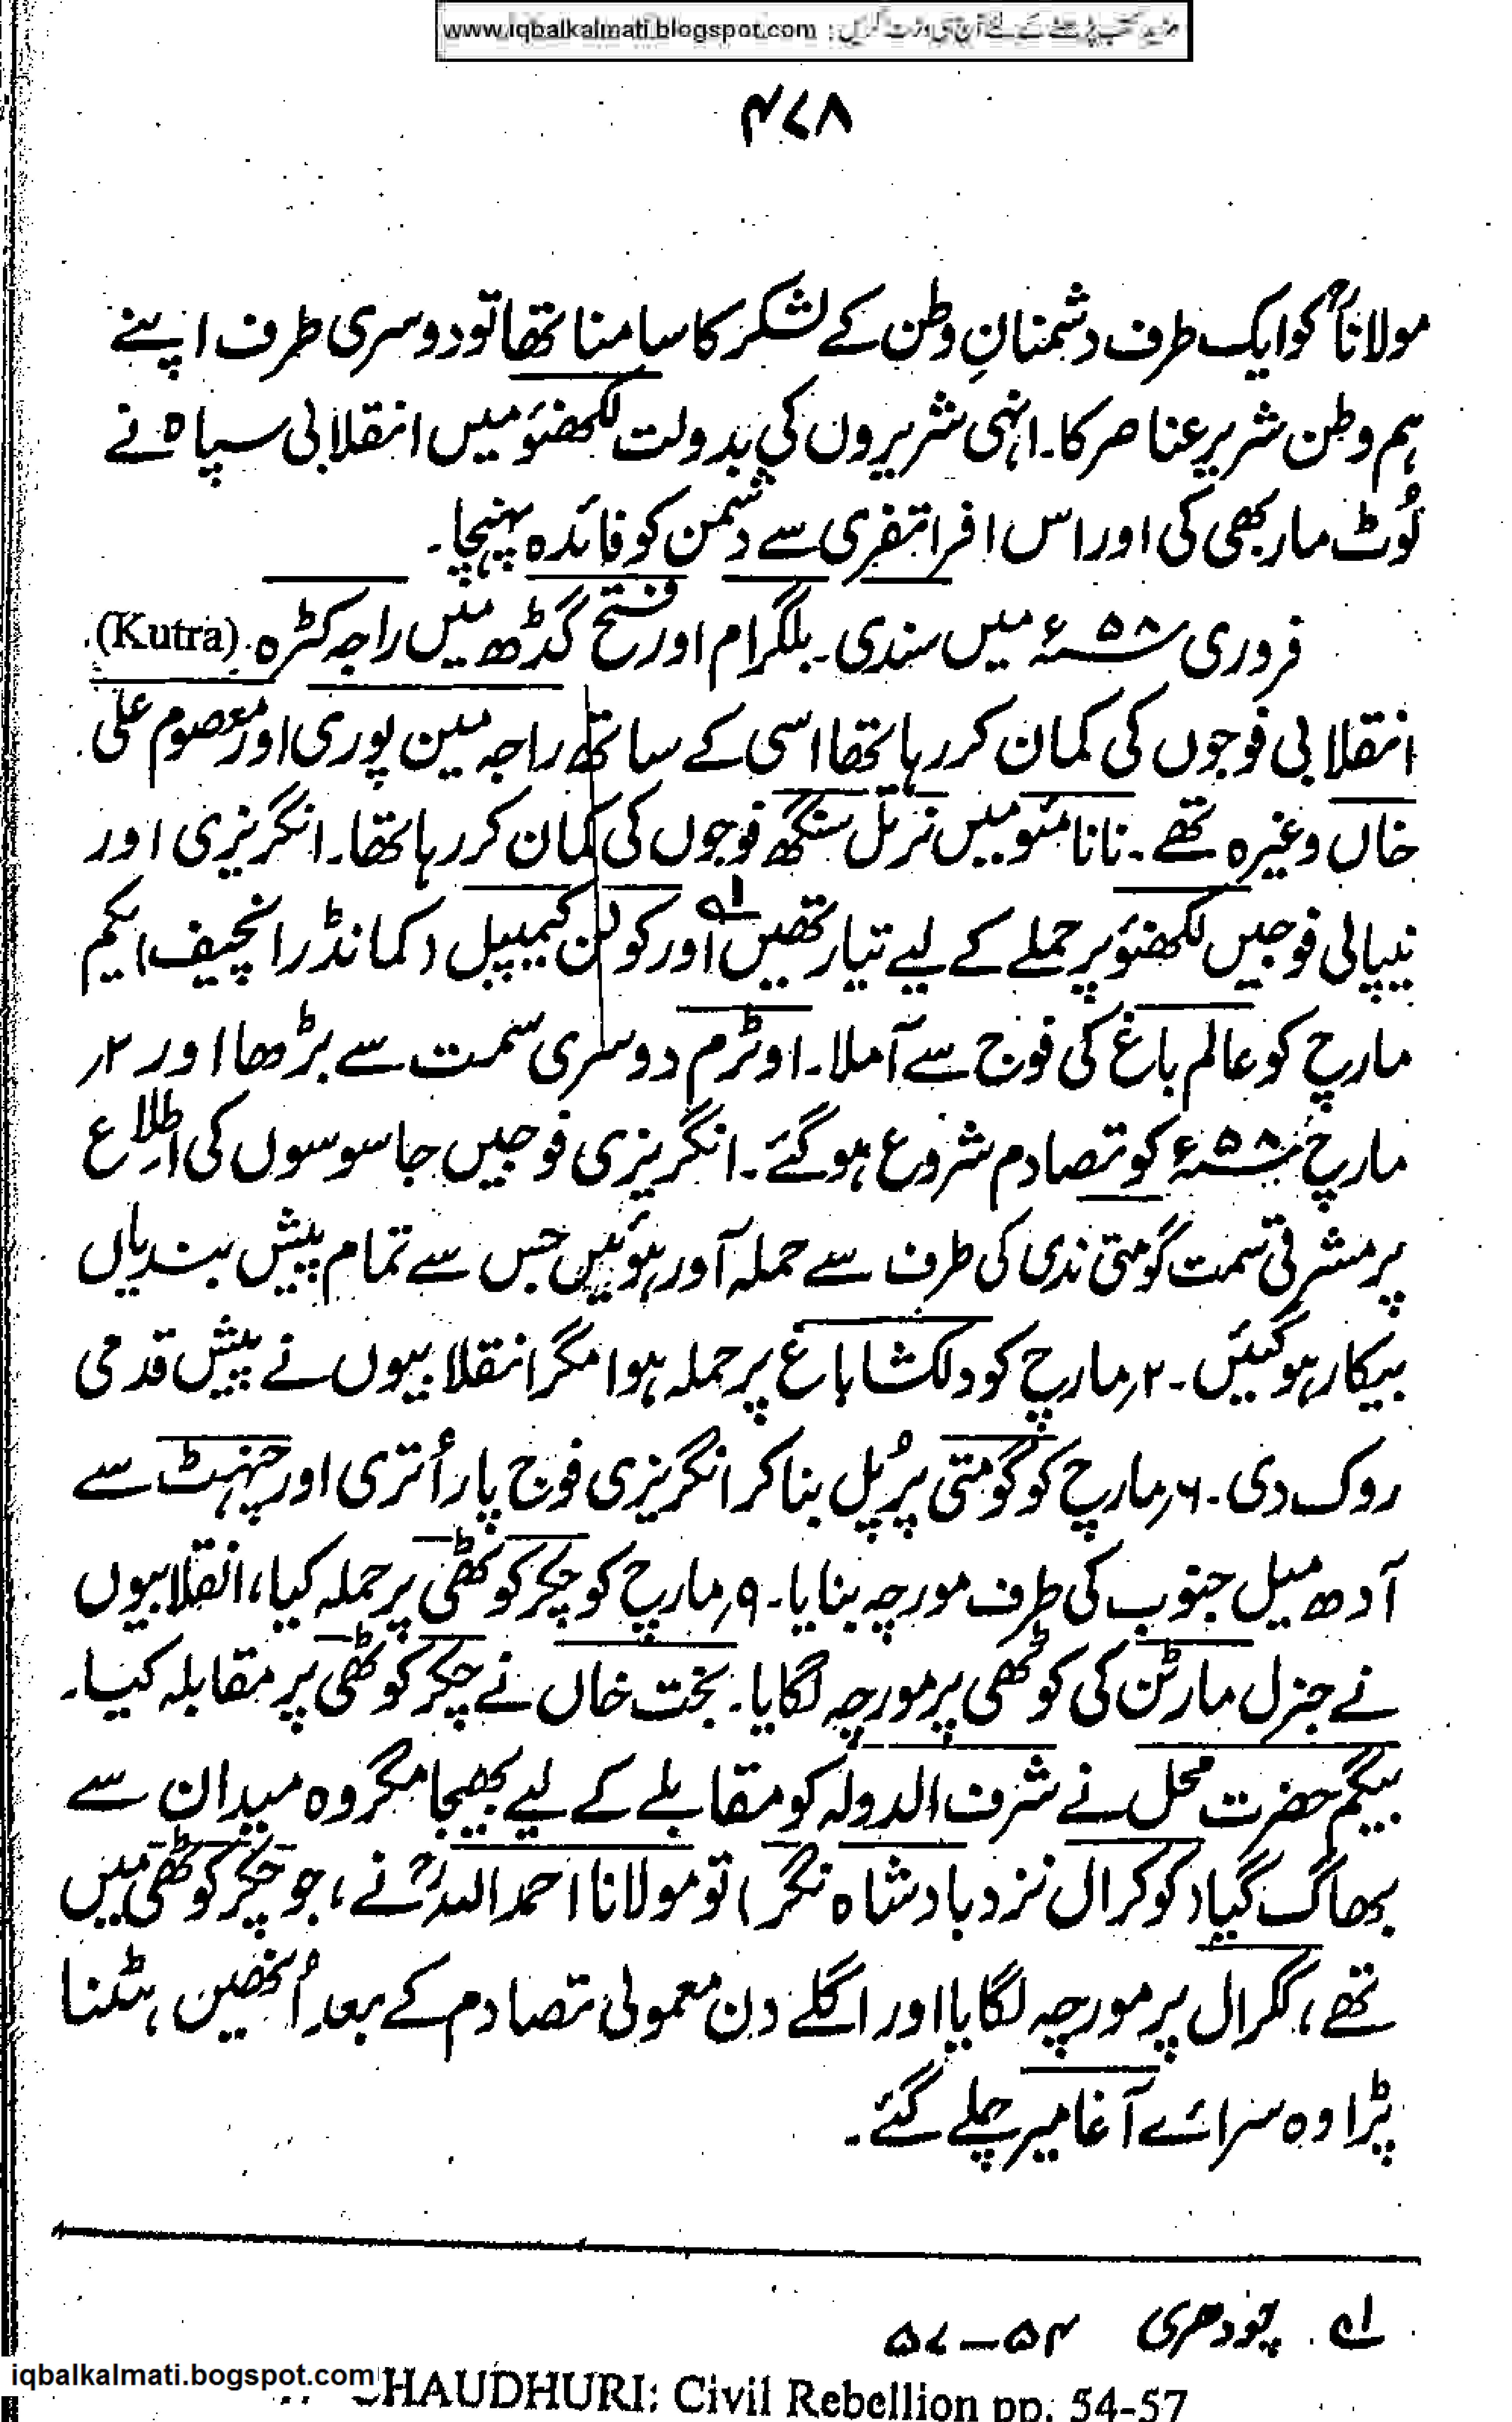 www.iqbalkalmati.blogspot.com : مزید کتب پڑھنے کے لئے آج ہی وزٹ کریں
۴۷۸
مولاناؒ کو ایک طرف دشمنانِ وطن کے لشکر کا سامنا تھا تو دوسری طرف اپنے
ہم وطن شریر عناصر کا۔ انہی شریروں کی بدولت لکھنؤ میں انقلابی سپاہ نے
لُوٹ مار بھی کی اور اس افراتفری سے دشمن کو فائدہ پہنچا۔
فروری ۵۸ء میں سندی۔ بلگرام اور فتح گڈھ میں راجہ کٹرہ (Kutra)
انقلابی فوجوں کی کمان کر رہا تھا اسی کے ساتھ راجہ مین پوری اور معصوم علی
خاں وغیرہ تھے۔ نانا مئو میں نرپل سنگھ فوجوں کی کمان کر رہا تھا۔ انگریزی اور
نیپالی فوجیں لکھنؤ پر حملے کے لیے تیار تھیں ۱ اور کولن کیمپبل (کمانڈر انچیف) یکم
مارچ کو عالم باغ کی فوج سے آملا۔ اوٹرم دوسری سمت سے بڑھا اور ۲؍
مارچ ۵۸ء کو تصادم شروع ہو گئے۔ انگریزی فوجیں جاسوسوں کی اطلاع
پر مشرقی سمت گومتی ندی کی طرف سے حملہ آور ہوئیں جس سے تمام پیش بندیاں
بیکار ہو گئیں۔ ۲؍مارچ کو دلکشا باغ پر حملہ ہوا مگر انقلابیوں نے پیش قدمی
روک دی۔ ۶؍مارچ کو گومتی پر پُل بنا کر انگریزی فوج پار اُتری اور چنہٹ سے
آدھ میل جنوب کی طرف مورچہ بنایا۔ ۹؍مارچ کو چکر کوٹھی پر حملہ کیا، انقلابیوں
نے جنرل مارٹن کی کوٹھی پر مورچہ لگایا۔ بخت خاں نے چکر کوٹھی پر مقابلہ کیا۔
بیگم حضرت محل نے شرف الدولہ کو مقابلے کے لیے بھیجا مگر وہ میدان سے
بھاگ گیا (کوکرال نزد بادشاہ نگر) تو مولانا احمد اللہؒ نے، جو چکر کوٹھی میں
تھے، ککرال پر مورچہ لگایا اور اگلے دن معمولی تصادم کے بعد اُنھیں ہٹنا
پڑا وہ سرائے آغا میر چلے گئے۔
۱ چودھری ۵۴–۵۷
CHAUDHURI: Civil Rebellion pp. 54-57
iqbalkalmati.bogspot.com